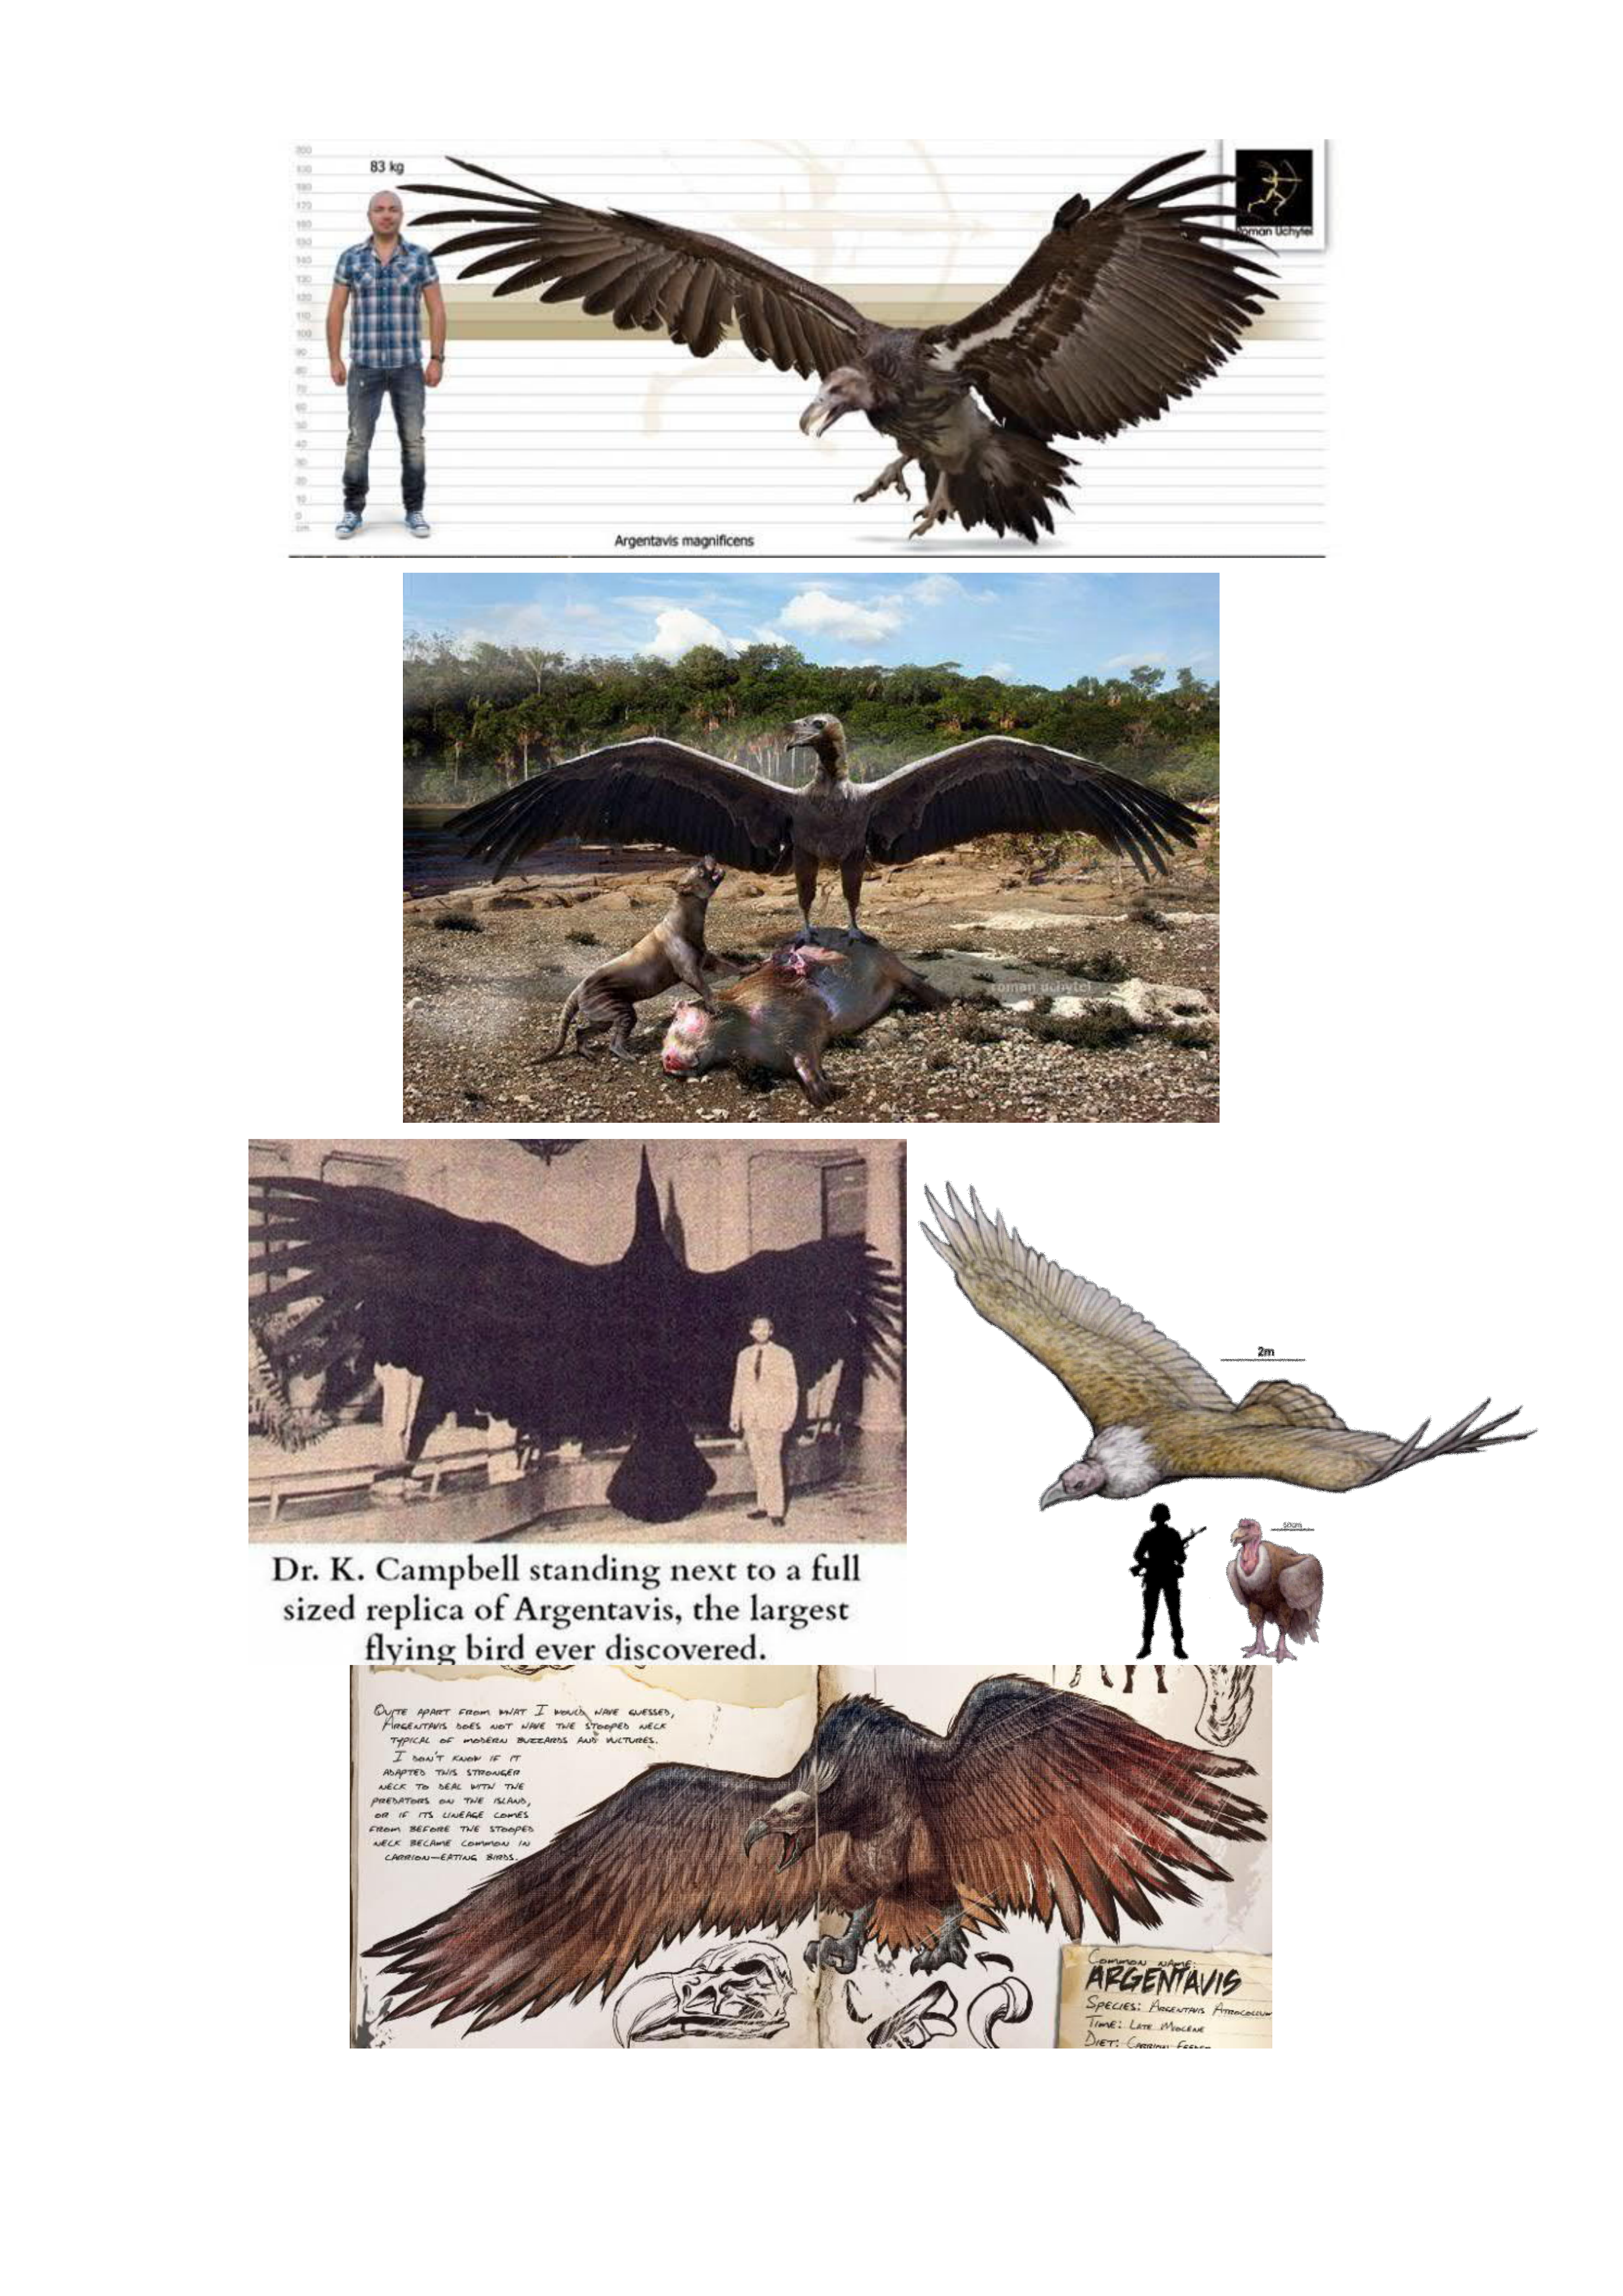 200
190
180
170
160
150
140
130
120
110
100
90
80
70
60
50
40
30
20
10
0
cm
83 kg
Roman Uchytel
Argentavis magnificens
roman uchytel
Dr. K. Campbell standing next to a full
sized replica of Argentavis, the largest
flying bird ever discovered.
2m
50cm
Quite apart from what I would have guessed,
Argentavis does not have the stooped neck
typical of modern buzzards and vultures.
I don't know if it
adapted this stronger
neck to deal with the
predators on the island,
or if its lineage comes
from before the stooped
neck became common in
carrion-eating birds.
Common name:
ARGENTAVIS
Species: Argentavis
Time: Late Miocene
Diet: Carrion